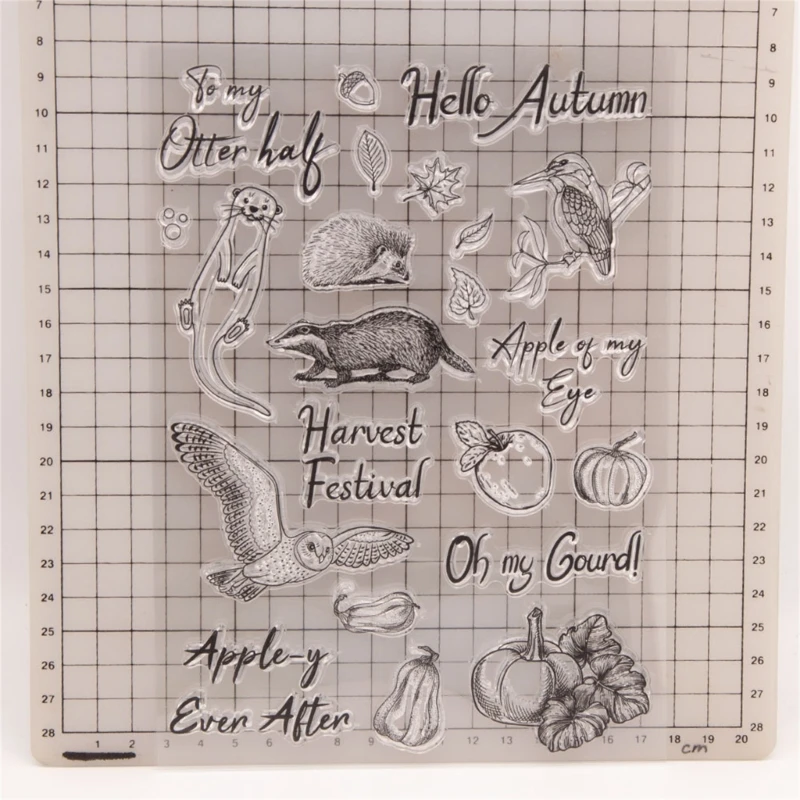 To my
Otter half
Hello Autumn
Apple of my
Eye
Harvest
Festival
Oh my Gourd!
Apple-y
Ever After
7
8
9
10
11
12
13
14
15
16
17
18
19
20
21
22
23
24
25
26
27
28
7
8
9
10
11
12
13
14
15
16
17
18
19
20
21
22
23
24
25
26
27
28
1 2 3 4 5 6 7 8 9 10 12 13 14 15 16 17 18 19 20
cm